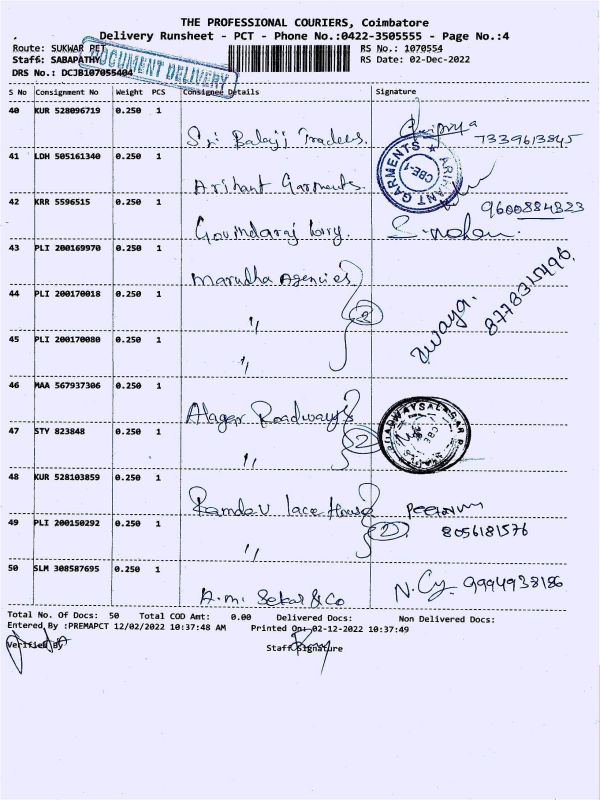 THE PROFESSIONAL COURIERS, Coimbatore
Delivery Runsheet - PCT - Phone No.:0422-3505555 - Page No.:4
Route: SUKWAR PET RS No.: 1070554
Staff: SABAPATHY RS Date: 02-Dec-2022
DOCUMENT DELIVERY
DRS No.: DCJB107055404
S No Consignment No Weight PCS Consignee Details Signature
40 KUR 528096719 0.250 1
Sri Balaji Traders. 7339613845
41 LDH 505161340 0.250 1
Arihant Garments. ARIHANT GARMENTS CBE-1
42 KRR 5596515 0.250 1 9600884323
Govindaraj lorry. S. mohan.
43 PLI 200169970 0.250 1
Marudha Agencies
44 PLI 200170018 0.250 1 3
" 8778315496.
45 PLI 200170080 0.250 1
"
46 MAA 567937306 0.250 1
Alagar Roadways
47 STY 823848 0.250 1 2
"
48 KUR 528103859 0.250 1
Ramdev lace House
49 PLI 200150292 0.250 1 2 8056181576
"
50 SLM 308587695 0.250 1
A.m. Sekar & Co 9994938186
Total No. Of Docs: 50 Total COD Amt: 0.00 Delivered Docs: Non Delivered Docs:
Entered By :PREMAPCT 12/02/2022 10:37:48 AM Printed On: 02-12-2022 10:37:49
Verified By Staff Signature